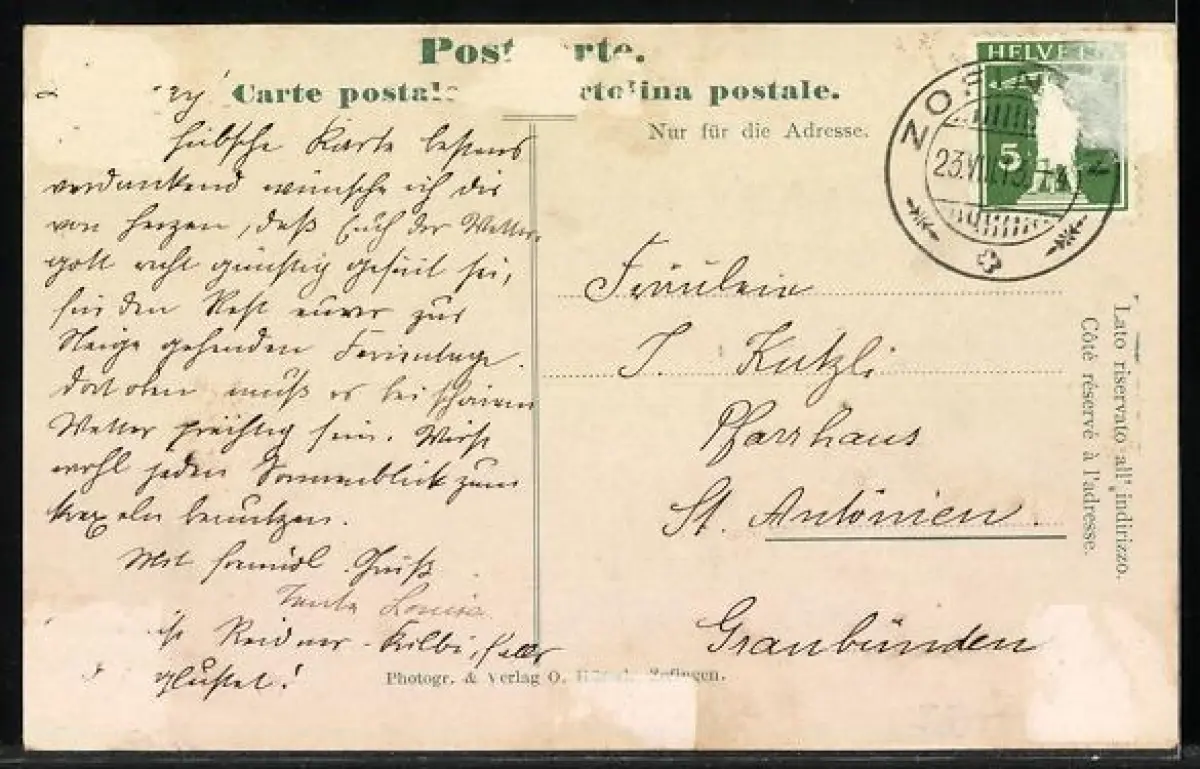 Postkarte.
Carte postale Cartolina postale.
Nur für die Adresse.
HELVE
5
ZOFIN
23.VIII.13
hübsche Karte bestens
verdankend wünsche ich dir
von Herzen, daß Euch der Wetter-
gott recht günstig gesinnt sei,
für den Rest eurer zur
Neige gehenden Ferientage.
Dort oben muß es bei schönem
Wetter prächtig sein. Wirst
wohl jeden Sonnenblick zum
kraxeln benutzen.
Mit freundl. Gruß
Tante Louise
ist Reidner-Kilbi,
glustet!
Fräulein
J. Kutzli
Pfarrhaus
St. Antönien.
Graubünden
Lato riservato all' indirizzo.
Côté réservé à l'adresse.
Photogr. & Verlag O. Zofingen.